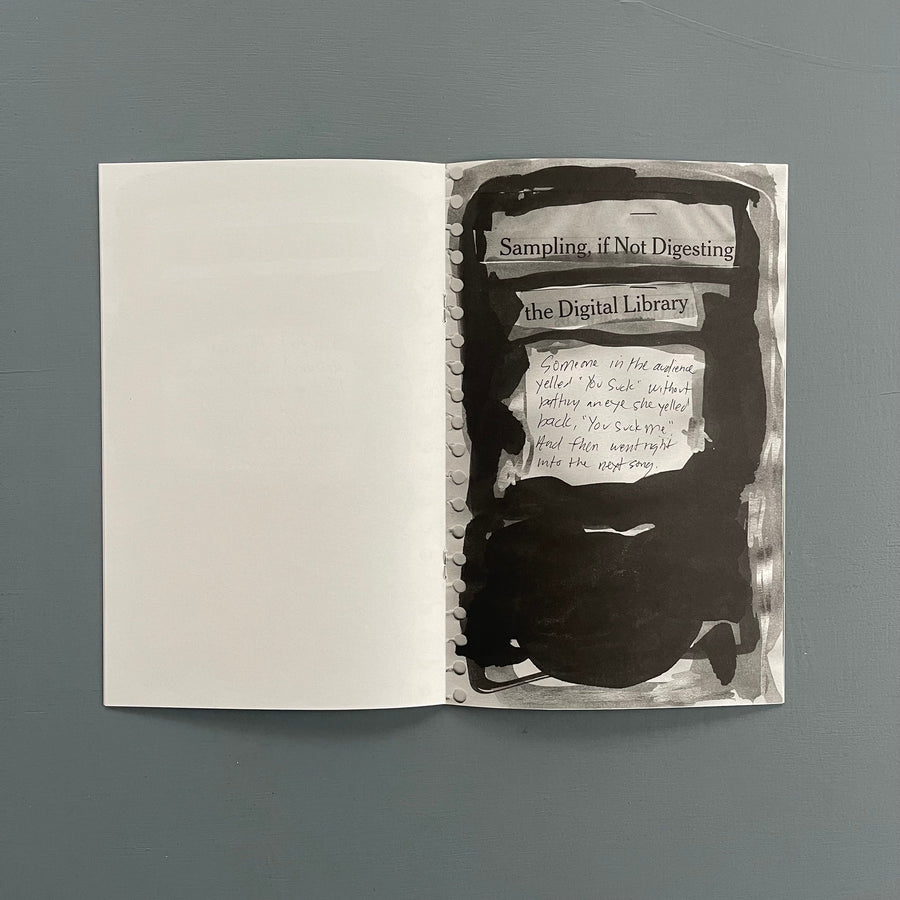 Sampling, if Not Digesting
the Digital Library
Someone in the audience
yelled "You Suck" without
batting an eye she yelled
back, "You suck me".
And then went right
into the next song.